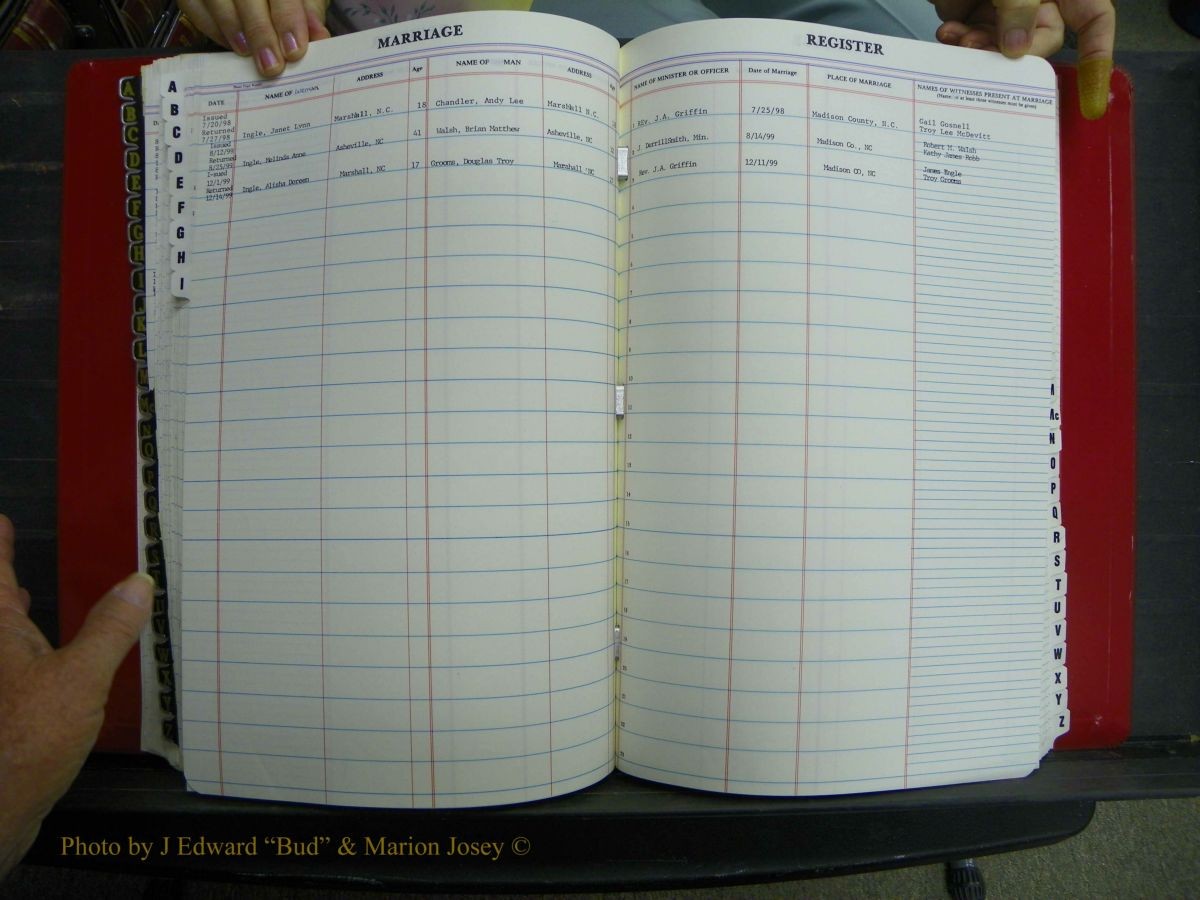 MARRIAGE
REGISTER
DATE NAME OF WOMAN ADDRESS Age NAME OF MAN ADDRESS Age NAME OF MINISTER OR OFFICER Date of Marriage PLACE OF MARRIAGE NAMES OF WITNESSES PRESENT AT MARRIAGE
Issued
7/20/98
Returned
7/27/98
Ingle, Janet Lynn Marshall, N.C. 18 Chandler, Andy Lee Marshall N.C. Rev. J.A. Griffin 7/25/98 Madison County, N.C. Gail Gosnell
Troy Lee McDevitt
Issued
8/12/99
Returned
8/25/99
Ingle, Melinda Anne Asheville, NC 41 Walsh, Brian Matthew Asheville, NC J. DerrillSmith, Min. 8/14/99 Madison Co., NC Robert M. Walsh
Kathy James Robb
Issued
12/1/99
Returned
12/14/99
Ingle, Alisha Doreen Marshall, NC 17 Grooms, Douglas Troy Marshall NC Rev. J.A. Griffin 12/11/99 Madison CO, NC James Engle
Troy Grooms
A
B
C
D
E
F
G
H
I
A
Ac
N
O
P
Q
R
S
T
U
V
W
X
Y
Z
Photo by J Edward “Bud” & Marion Josey ©